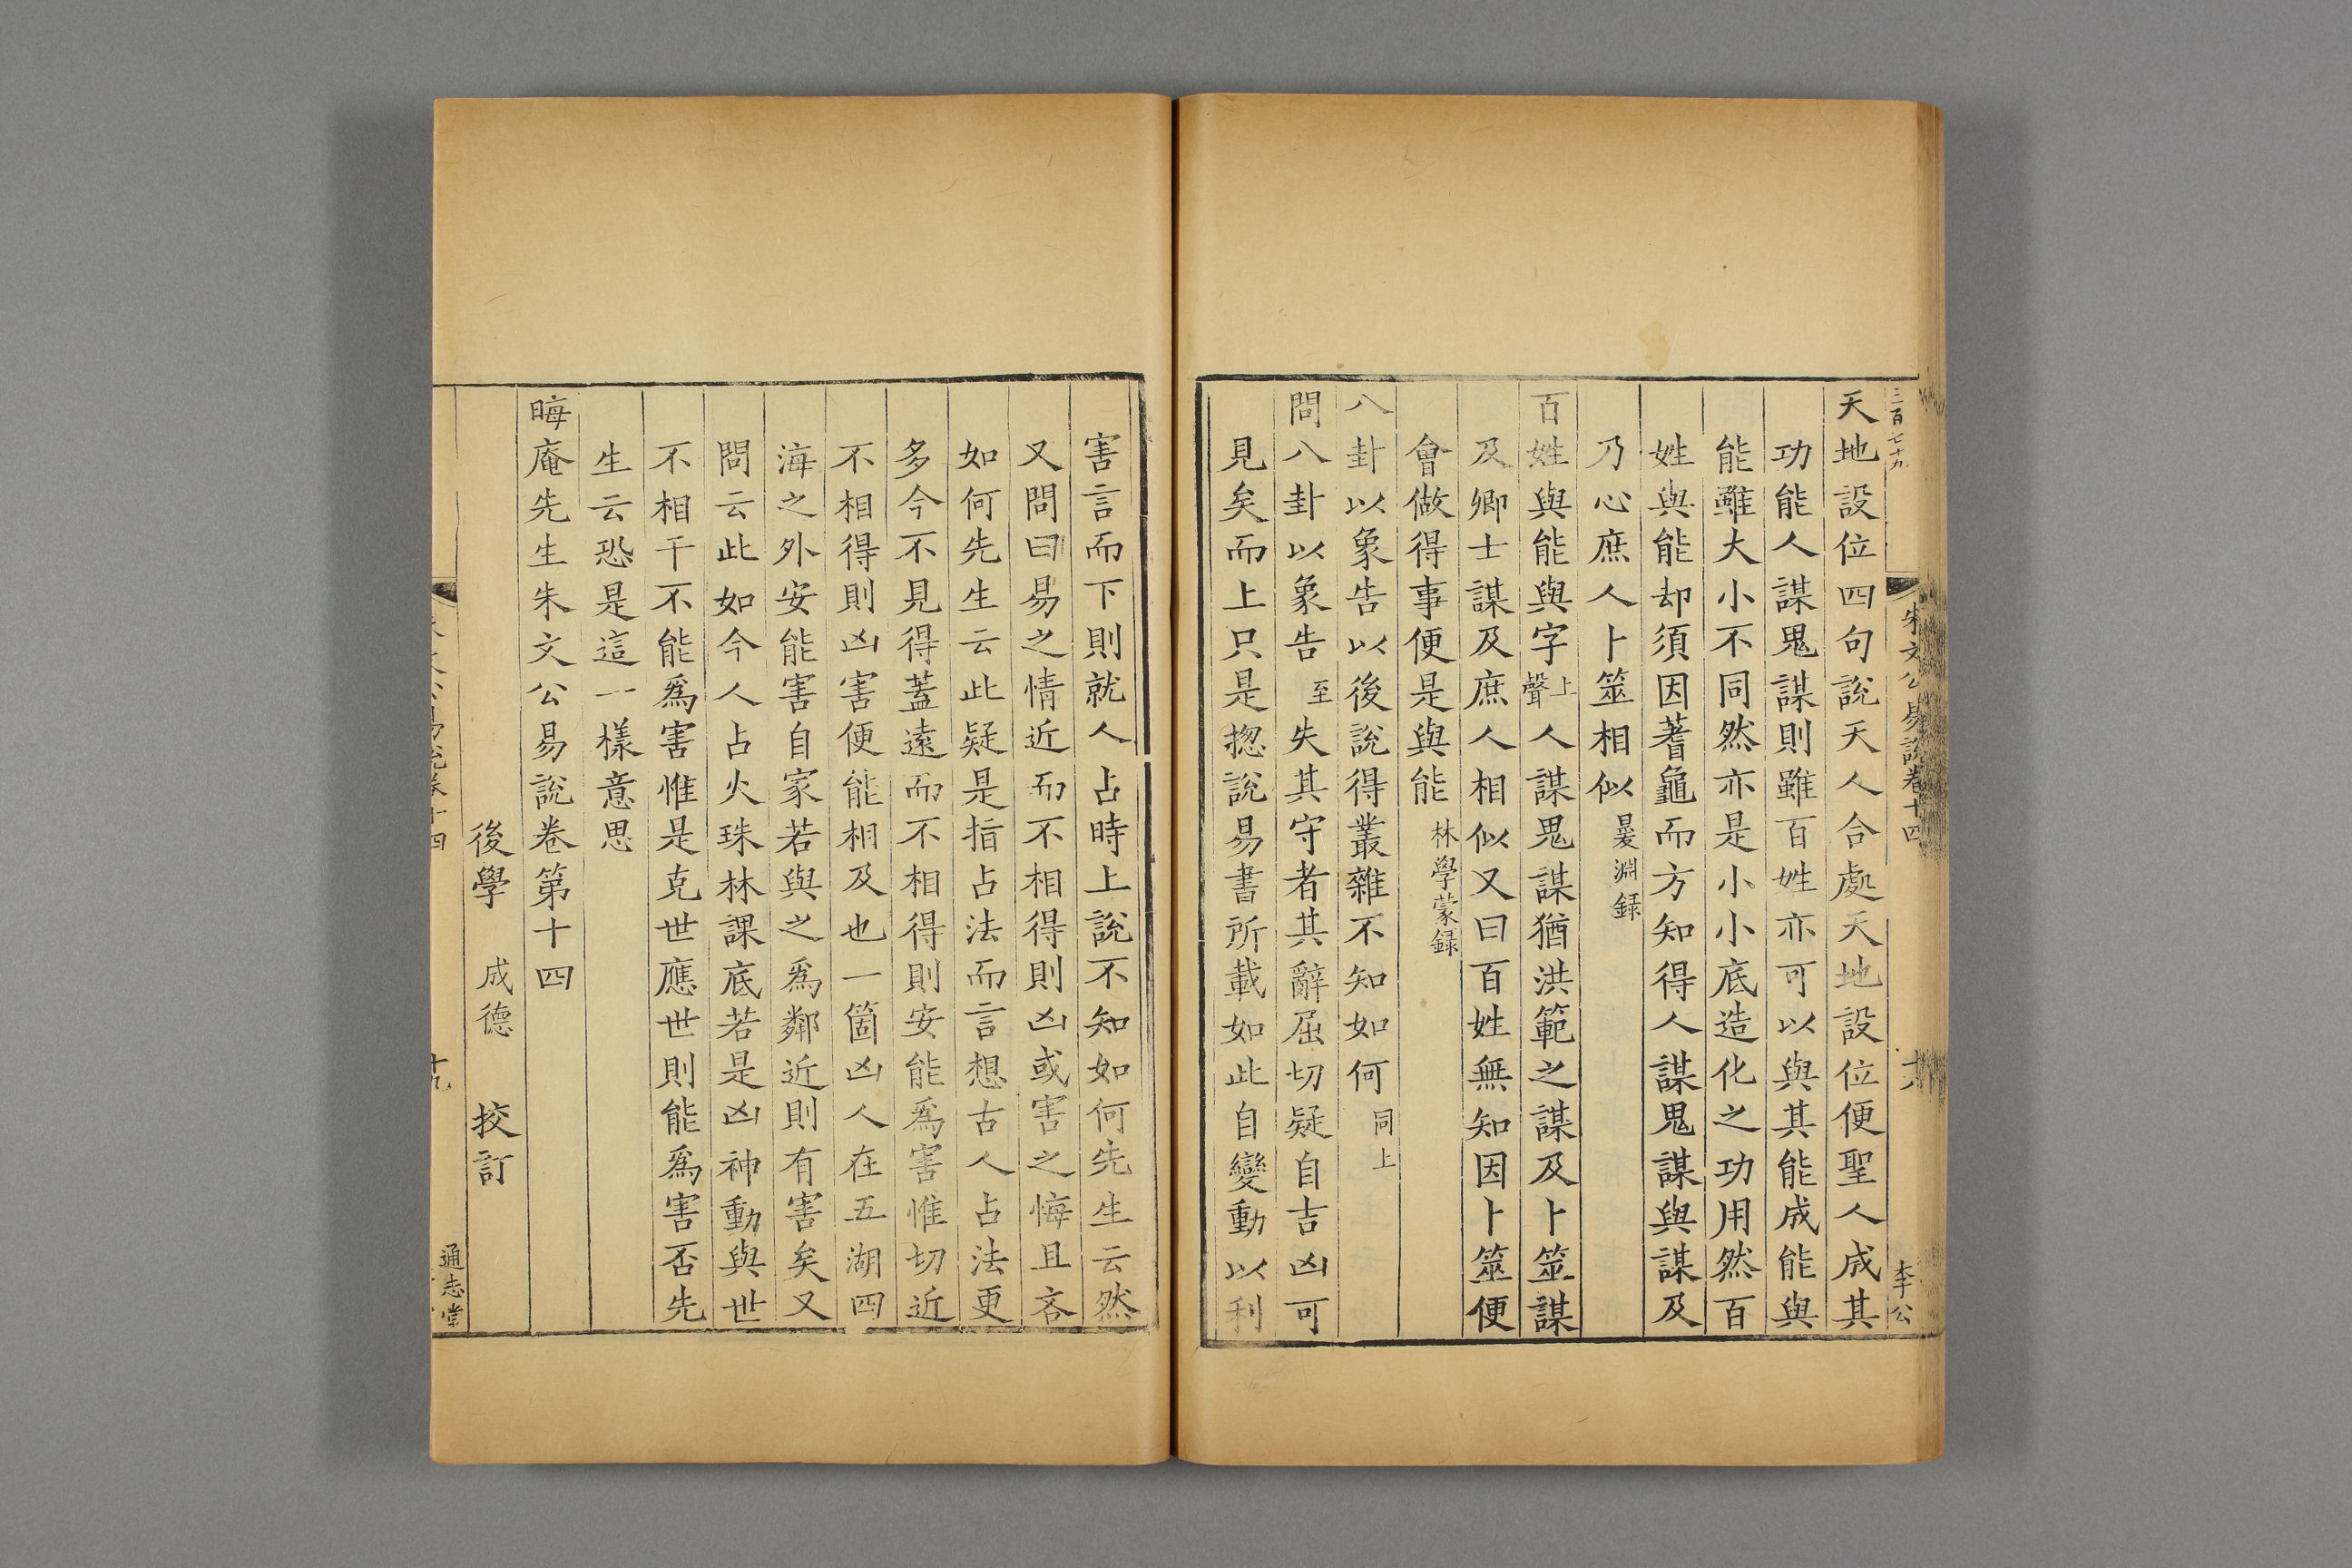 三百七十九
朱文公易說卷十四
十八
李公
天地設位四句說天人合處天地設位便聖人成其
功能人謀鬼謀則雖百姓亦可以與其能成能與
能雖大小不同然亦是小小底造化之功用然百
姓與能却須因蓍龜而方知得人謀鬼謀與謀及
乃心庶人卜筮相似㬊淵録
百姓與能與字上聲人謀鬼謀猶洪範之謀及卜筮謀
及卿士謀及庶人相似又曰百姓無知因卜筮便
會做得事便是與能林學蒙録
八卦以象告以後說得叢雜不知如何同上
問八卦以象告至失其守者其辭屈切疑自吉凶可
見矣而上只是揔說易書所載如此自變動以利
害言而下則就人占時上說不知如何先生云然
又問曰易之情近而不相得則凶或害之悔且吝
如何先生云此疑是指占法而言想古人占法更
多今不見得蓋遠而不相得則安能爲害惟切近
不相得則凶害便能相及也一箇凶人在五湖四
海之外安能害自家若與之爲鄰近則有害矣又
問云此如今人占火珠林課底若是凶神動與世
不相干不能爲害惟是克世應世則能爲害否先
生云恐是這一樣意思
晦庵先生朱文公易說卷第十四
後學 成德 挍訂
易說卷十四
十九
通志堂